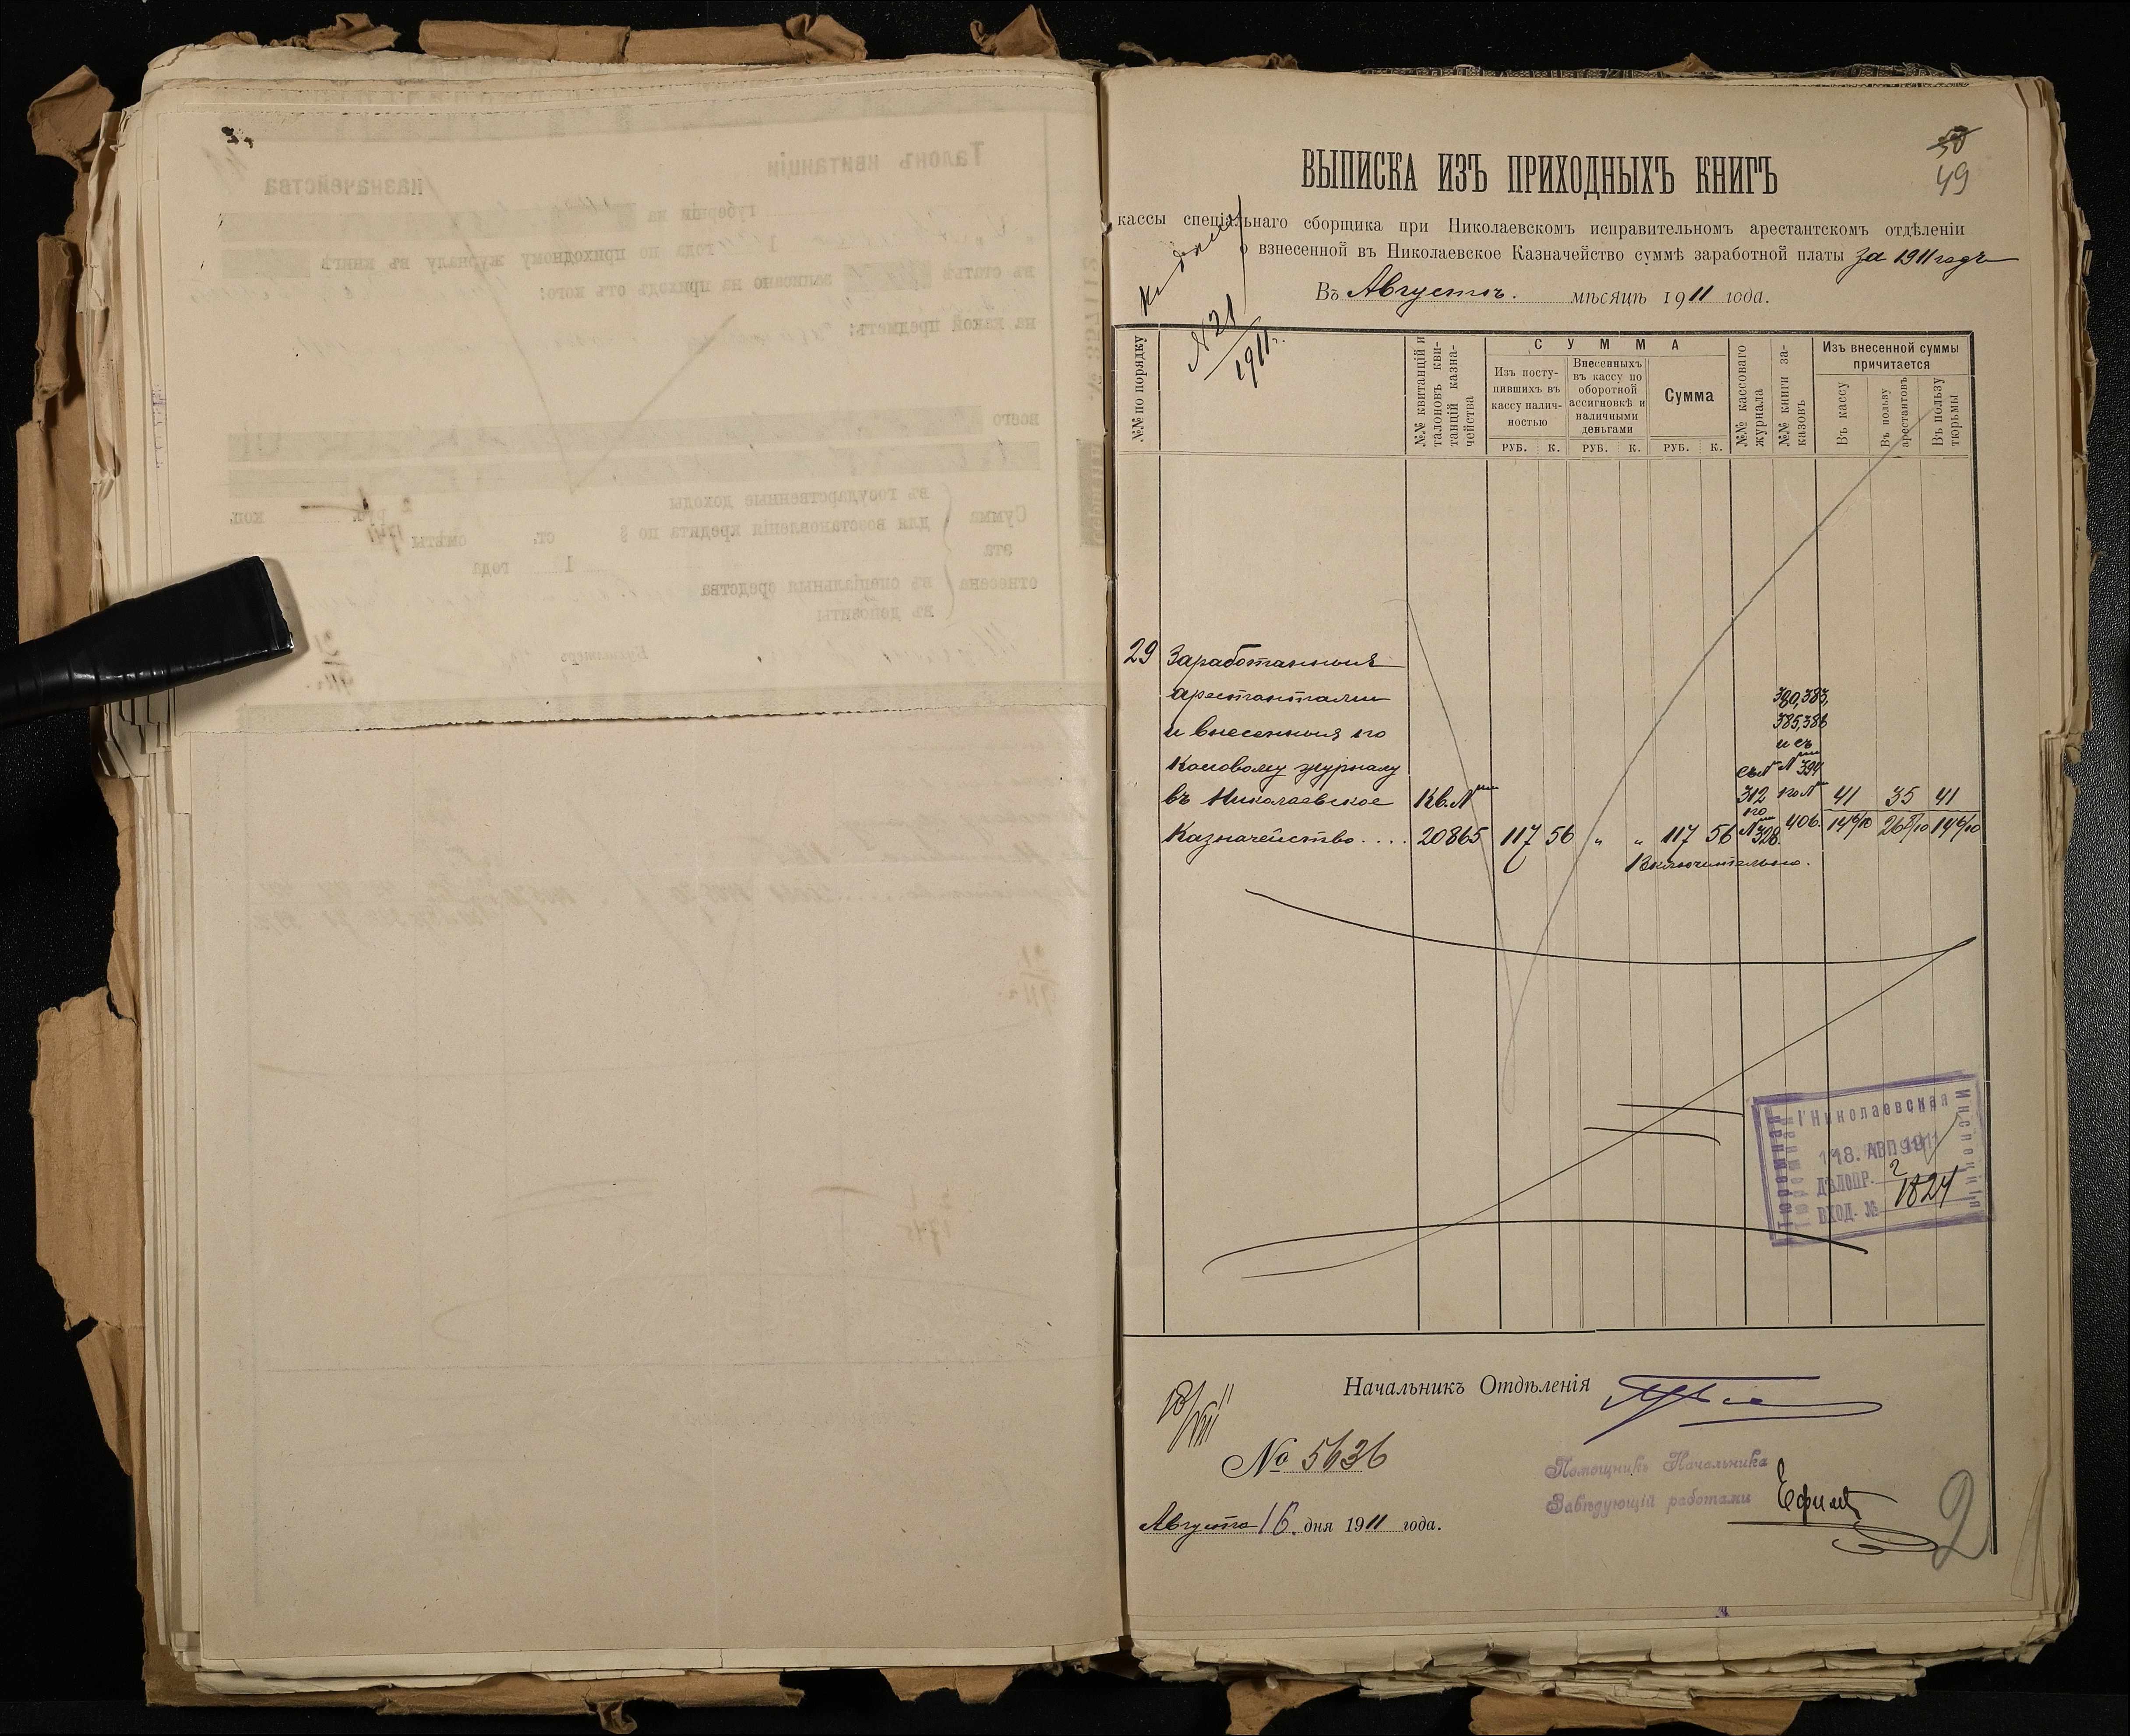 50
49
ВЫПИСКА ИЗЪ ПРИХОДНЫХЪ КНИГЪ
кассы спеціальнаго сборщика при Николаевскомъ исправительномъ арестантскомъ отдѣленіи
о взнесенной въ Николаевское Казначейство суммѣ заработной платы за 1911 годъ
Въ Августѣ. мѣсяцѣ 1911 года.
№ 21
1911 г.
№№ по порядку
№№ квитанцій и талоновъ квитанцій казначейства
СУММА
Изъ поступившихъ въ кассу наличностью
Внесенныхъ въ кассу по оборотной ассигновкѣ и наличными деньгами
Сумма
РУБ. К. РУБ. К. РУБ. К.
№№ кассоваго журнала
№№ книги заказовъ
Изъ внесенной суммы причитается
Въ кассу
Въ пользу арестантовъ
Въ пользу тюрьмы
29 Заработанныя
арестантами 380, 383,
и внесенныя по 385, 386
и съ
Кассовому журналу съ № № 394
въ Николаевское Кв. № 312 по № 41 35 41
Казначейство.... 20865 117 56 „ „ 117 56 по № 328. 406. 14 6/10 26 8/10 14 6/10
Включительно.
Николаевская
Тюремная
Инспекція
18. АВГ. 1911
ДѢЛОПР. 2
ВХОД. № 1824
Начальникъ Отдѣленія
18/VIII 11
№ 5636
Помощникъ Начальника
Завѣдующій работами
Августа 16. дня 1911 года.
2
Талонъ квитанціи
казначейства
губерніи на
1 года по приходному журналу въ книгѣ
въ статьѣ записано на приходъ отъ кого:
на какой предметъ:
всего
Сумма эта отнесена
въ государственные доходы руб. коп.
для возстановленія кредита по § ст. смѣты
1 года
въ спеціальныя средства
въ депозиты
Бухгалтеръ